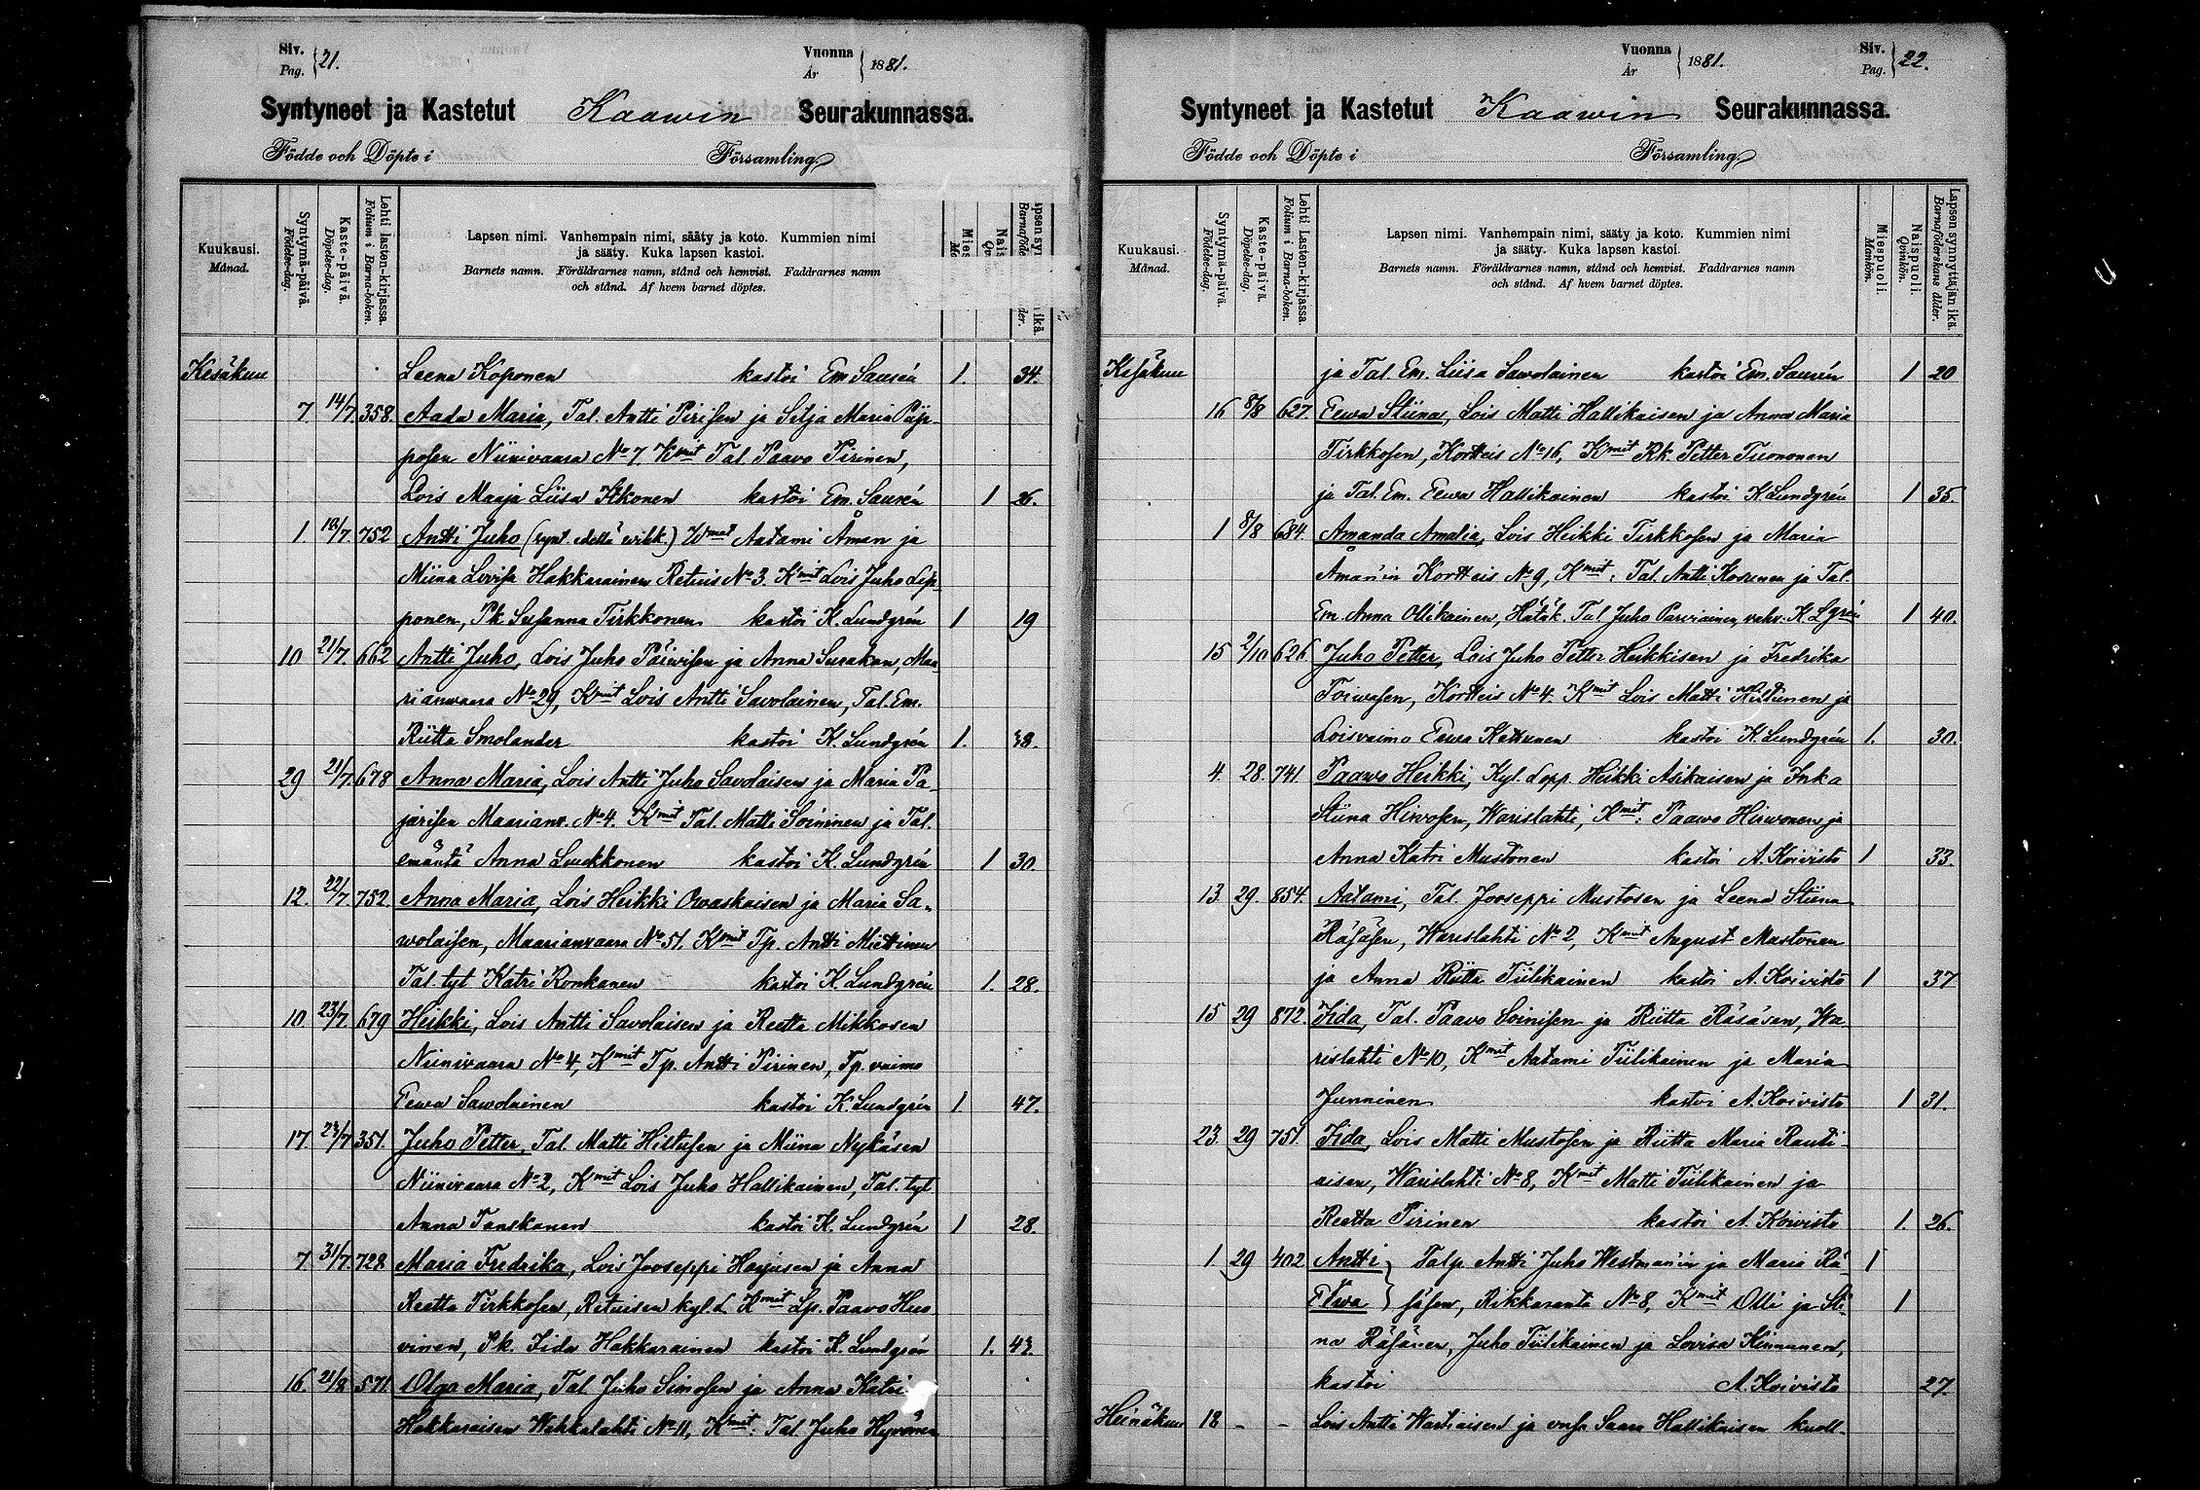 Siv. Pag. } 21. Vuonna År } 1881.
Syntyneet ja Kastetut Kaawin Seurakunnassa.
Födde och Döpte i Församling
Kuukausi. Månad.
Syntymä-päivä. Födelse-dag.
Kaste-päivä. Döpelse-dag.
Lehti lasten-kirjassa. Folium i Barna-boken.
Lapsen nimi. Vanhempain nimi, sääty ja koto. Kummien nimi
ja sääty. Kuka lapsen kastoi.
Barnets namn. Föräldrarnes namn, stånd och hemvist. Faddrarnes namn
och stånd. Af hvem barnet döptes.
Kesäkuu Leena Koponen kastoi Em Saurén 1. 34.
7. 14/7 358. Aada Maria, Tal. Antti Pirisen ja Silja Maria Pip-
posen Niinivaara No 7. Kmit Tal. Paavo Pirinen,
Lois Maaja Liisa Itkonen kastoi Em. Saurén 1 26.
1 18/7 752 Antti Juho (synt. edellä wihk.) Aatami Åman ja
Miina Lovisa Hakkarainen Retuis No 3. Kmit Lois Juho Lip-
ponen, Pk Susanna Tirkkonen kastoi K. Lundgrén 1 19
10 21/7. 662 Antti Juho, Lois Juho Päiwisen ja Anna Surakan, Maa-
rianwaara No 29, Kmit Lois Antti Savolainen, Tal. Em.
Riitta Smolander kastoi K. Lundgrén 1. 38.
29 21/7. 678 Anna Maria, Lois Antti Juho Savolaisen ja Maria Pa-
jarisen Maarianv. No 4. Kmit Tal. Matti Soininen ja Tal.
emäntä Anna Luukkonen kastoi K. Lundgrén 1 30.
12. 22/7. 752. Anna Maria, Lois Heikki Owaskaisen ja Maria Sa-
wolaisen, Maarianvaara No 51. Kmit Tp. Antti Miettinen
Tal. tyt Katri Ronkanen kastoi K. Lundgrén 1. 28.
10 23/7. 679 Heikki, Lois Antti Savolaisen ja Reetta Mikkosen
Niinivaara No 4, Kmit Tp. Antti Pirinen, Tp. vaimo
Eewa Sawolainen kastoi K. Lundgrén 1. 47.
17 24/7 351. Juho Petter, Tal. Matti Hiltusen ja Miina Nykäsen
Niinivaara No 2, Kmit Lois Juho Hallikainen, Tal. tyt
Anna Tanskanen kastoi K. Lundgrén 1 28.
7 31/7. 728 Maria Fredrika, Lois Jooseppi Harjusen ja Anna
Reetta Tirkkosen, Retuisen kyl. L Kmit Lp. Paavo Huo-
vinen, Pk. Iida Hakkarainen kastoi K. Lundgrén 1. 43.
16. 21/8 571 Olga Maria, Tal Juho Simosen ja Anna Katri
Hakkaraisen Wehkalahti No 11, Kmit: Tal. Juho Hyvönen
Vuonna År } 1881. Siv. Pag. } 22.
Syntyneet ja Kastetut Kaawin Seurakunnassa.
Födde och Döpte i Församling
Kuukausi. Månad.
Syntymä-päivä. Födelse-dag.
Kaste-päivä. Döpelse-dag.
Lehti Lasten-kirjassa. Folium i Barna-boken.
Lapsen nimi. Vanhempain nimi, sääty ja koto. Kummien nimi
ja sääty. Kuka lapsen kastoi.
Barnets namn. Föräldrarnes namn, stånd och hemvist. Faddrarnes namn
och stånd. Af hvem barnet döptes.
Miespuoli. Mankön.
Naispuoli. Qvinkön.
Lapsen synnyttäjän ikä. Barnaföderskans ålder.
Kesäkuu ja Tal. Em. Liisa Sawolainen kastoi Em. Saurén 1 20
16 8/8 627. Eewa Stiina, Lois Matti Hallikaisen ja Anna Maria
Tirkkosen, Kortteis No 16, Kmit Rk Petter Tuononen
ja Tal. Em. Eewa Hallikainen kastoi K Lundgrén 1 35.
1 8/8 684. Amanda Amalia, Lois Heikki Tirkkosen ja Maria
Åman'in Kortteis No 9, Kmit: Tal. Antti Kosunen ja Tal.
Em. Anna Ollikainen, Hätäk. Tal Juho Parviainen, vahv. K Lgrén 1 40.
15 2/10 626 Juho Petter, Lois Juho Petter Heikkisen ja Fredrika
Toivasen, Kortteis No 4. Kmit Lois Matti ja
Loisvaimo Eewa Kettunen kastoi K. Lundgrén 1. 30.
4. 28. 741. Paawo Heikki, Kyl. Lopp. Heikki Asikaisen ja Inka
Stiina Hirvosen, Warislahti, Kmit: Paawo Hirwonen ja
Anna Katri Mustonen kastoi A. Koivisto 1 33.
13. 29. 854. Aatami, Tal. Jooseppi Mustosen ja Leena Stiina
Räsäsen, Warislahti No 2, Kmit August Mustonen
ja Anna Riitta Tiilikainen kastoi A. Koivisto 1 37
15 29 872. Iida, Tal. Paavo Soinisen ja Riitta Räsäsen, Wa-
rislahti No 10, Kmit Aatami Tiilikainen ja Maria
Junninen kastoi A. Koivisto 1 31.
23. 29 751. Iida, Lois Matti Mustosen ja Riitta Maria Rauti-
aisen, Warislahti No 8, Kmit Matti Tiilikainen ja
Reetta Pirinen kastoi A. Koivisto 1. 26.
1 29 402 Antti } Talp. Antti Juho Westman'in ja Maria Rä- 1
Eewa } säsen, Rikkaranta No 8, Kmit Olli ja Sti- 1
na Räsänen, Juho Tiilikainen ja Lovisa Kinnunen,
kastoi A. Koivisto 27.
Heinäkuu 18 - - Lois Antti Wartiaisen ja Saara Hallikaisen kuoll.